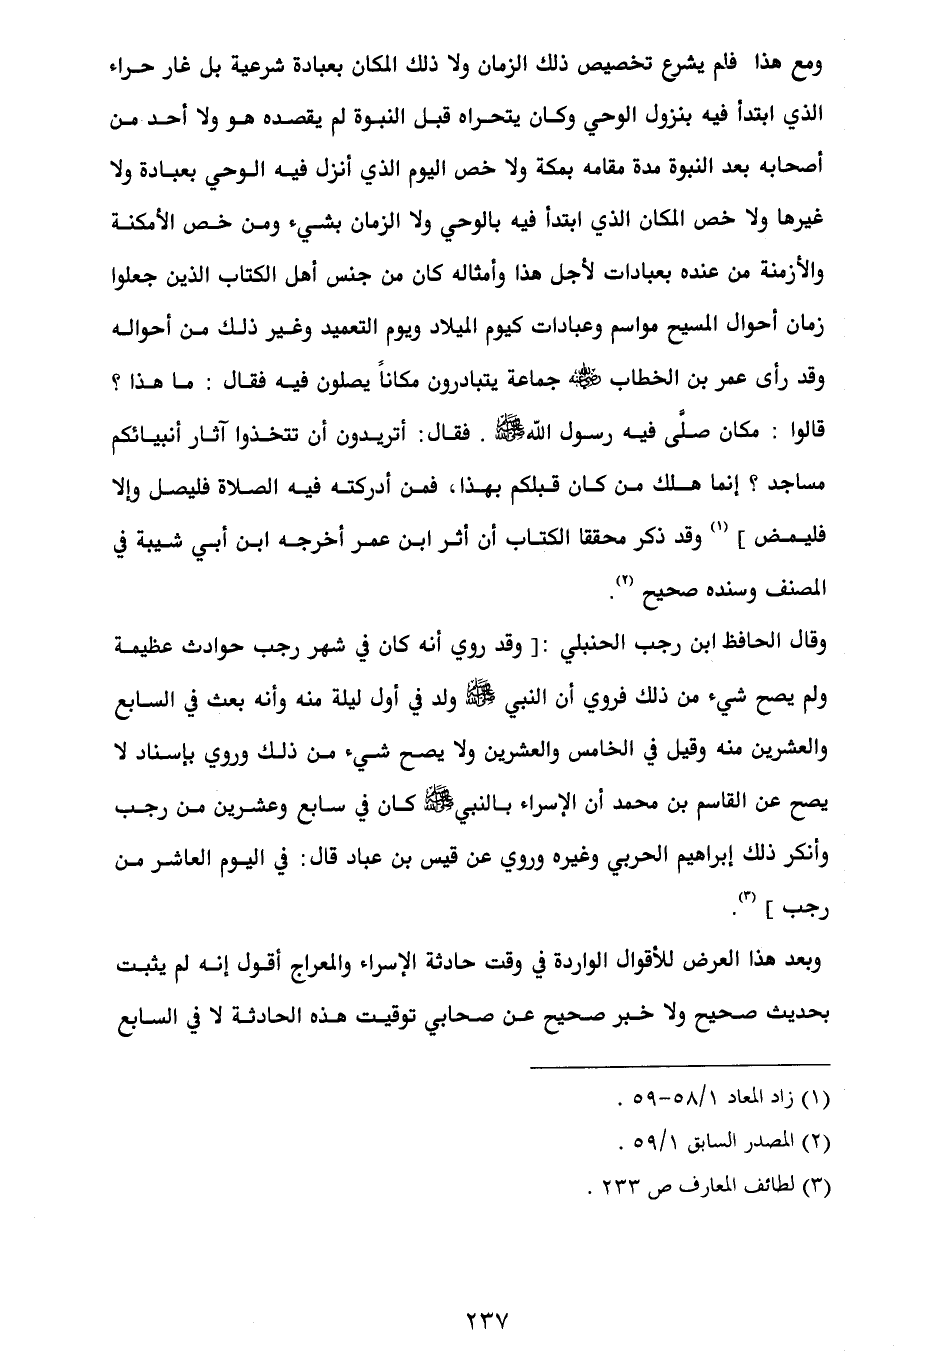 ومع هذا فلم يشرع تخصيص ذلك الزمان ولا ذلك المكان بعبادة شرعية بل غار حراء
الذي ابتدأ فيه بنزول الوحي وكان يتحراه قبل النبوة لم يقصده هو ولا أحد من
أصحابه بعد النبوة مدة مقامه بمكة ولا خص اليوم الذي أنزل فيه الوحي بعبادة ولا
غيرها ولا خص المكان الذي ابتدأ فيه بالوحي ولا الزمان بشيء ومن خص الأمكنة
والأزمنة من عنده بعبادات لأجل هذا وأمثاله كان من جنس أهل الكتاب الذين جعلوا
زمان أحوال المسيح مواسم وعبادات كيوم الميلاد ويوم التعميد وغير ذلك من أحواله
وقد رأى عمر بن الخطاب ﵁ جماعة يتبادرون مكاناً يصلون فيه فقال : ما هذا ؟
قالوا : مكان صلَّى فيه رسول الله ﷺ . فقال : أتريدون أن تتخذوا آثار أنبيائكم
مساجد ؟ إنما هلك من كان قبلكم بهذا، فمن أدركته فيه الصلاة فليصل وإلا
فليمض ] (١) وقد ذكر محققا الكتاب أن أثر ابن عمر أخرجه ابن أبي شيبة في
المصنف وسنده صحيح (٢).
وقال الحافظ ابن رجب الحنبلي :[ وقد روي أنه كان في شهر رجب حوادث عظيمة
ولم يصح شيء من ذلك فروي أن النبي ﷺ ولد في أول ليلة منه وأنه بعث في السابع
والعشرين منه وقيل في الخامس والعشرين ولا يصح شيء من ذلك وروي بإسناد لا
يصح عن القاسم بن محمد أن الإسراء بالنبي ﷺ كان في سابع وعشرين من رجب
وأنكر ذلك إبراهيم الحربي وغيره وروي عن قيس بن عباد قال : في اليوم العاشر من
رجب ] (٣).
وبعد هذا العرض للأقوال الواردة في وقت حادثة الإسراء والمعراج أقول إنه لم يثبت
بحديث صحيح ولا خبر صحيح عن صحابي توقيت هذه الحادثة لا في السابع
(١) زاد المعاد ٥٨/١-٥٩ .
(٢) المصدر السابق ٥٩/١ .
(٣) لطائف المعارف ص ٢٣٣ .
٢٣٧